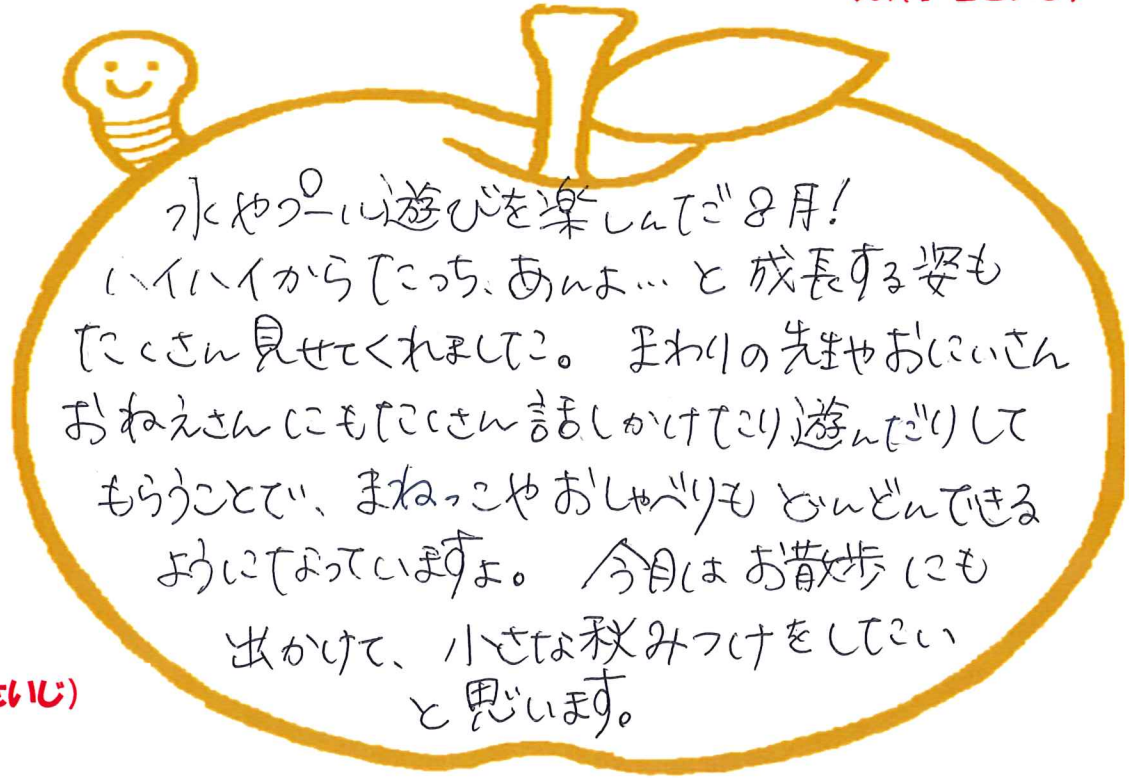 水やプール遊びを楽しんだ8月!
ハイハイからたっち、あんよ…と成長する姿も
たくさん見せてくれました。 まわりの先生やおにいさん
おねえさんにもたくさん話しかけたり遊んだりして
もらうことで、まねっこやおしゃべりもどんどんできる
ようになっていますよ。 今月はお散歩にも
出かけて、小さな秋みつけをしたい
と思います。
いじ)